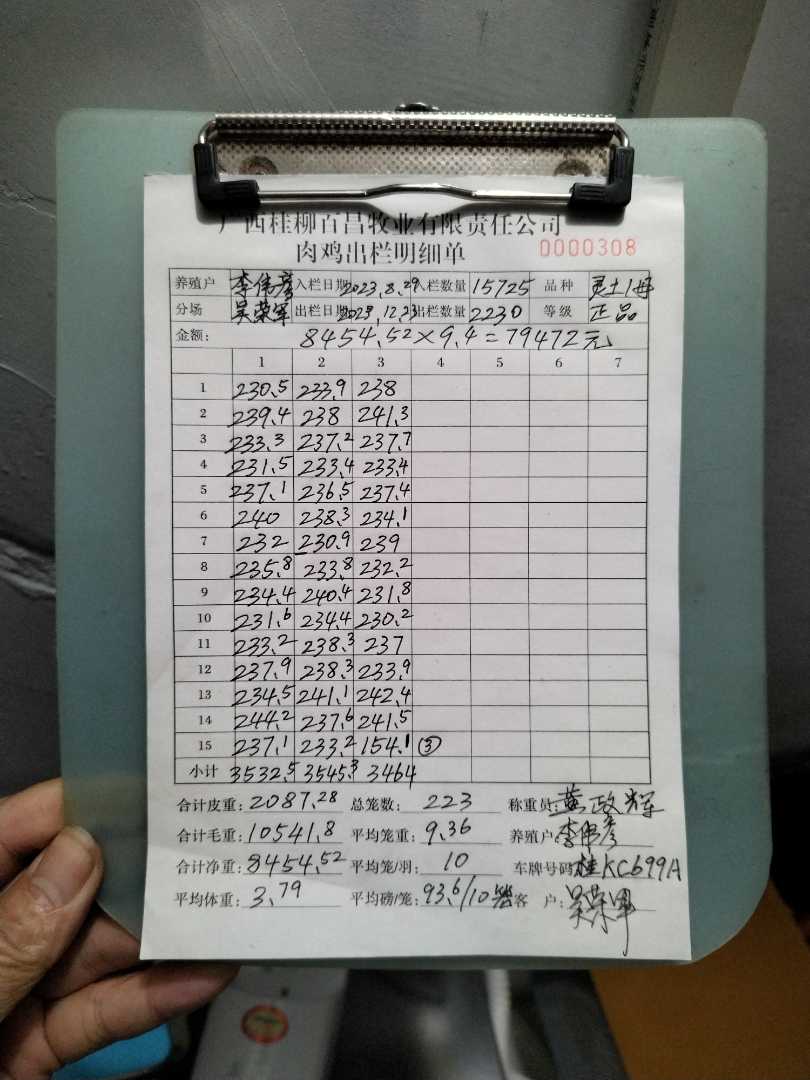 广西桂柳百昌牧业有限责任公司
肉鸡出栏明细单 0000308
养殖户 李伟彦 入栏日期 2023.8.29 入栏数量 15725 品种 灵土1母
分场 吴荣军 出栏日期 2023.12.23 出栏数量 2230 等级 正品
金额: 8454.52×9.4=79472元
1 2 3 4 5 6 7
1 230.5 233.9 238
2 239.4 238 241.3
3 233.3 237.2 237.7
4 231.5 233.4 233.4
5 237.1 236.5 237.4
6 240 238.3 234.1
7 232 230.9 239
8 235.8 233.8 232.2
9 234.4 240.4 231.8
10 231.6 234.4 230.2
11 233.2 238.3 237
12 237.9 238.3 233.9
13 234.5 241.1 242.4
14 244.2 237.6 241.5
15 237.1 233.2 154.1 ③
小计 3532.5 3545.3 3464
合计皮重: 2087.28 总笼数: 223 称重员: 黄政辉
合计毛重: 10541.8 平均笼重: 9.36 养殖户: 李伟彦
合计净重: 8454.52 平均笼/羽: 10 车牌号码: 桂KC699A
平均体重: 3.79 平均磅/笼: 93.6/10 客 户: 吴荣军